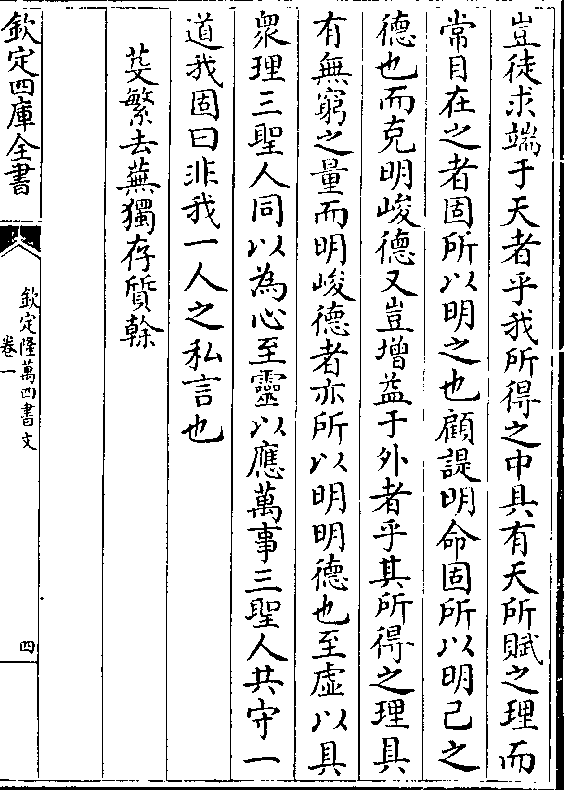 豈徒求端于天者乎我所得之中具有天所賦之理而
常目在之者固所以明之也顧諟明命固所以明己之
德也而克明峻德又豈增益于外者乎其所得之理具
有無窮之量而明峻德者亦所以明明德也至虛以具
衆理三聖人同以為心至靈以應萬事三聖人共守一
道我固曰非我一人之私言也
芟繁去蕪獨存質幹
欽定四庫全書
欽定隆萬四書文
卷一
四